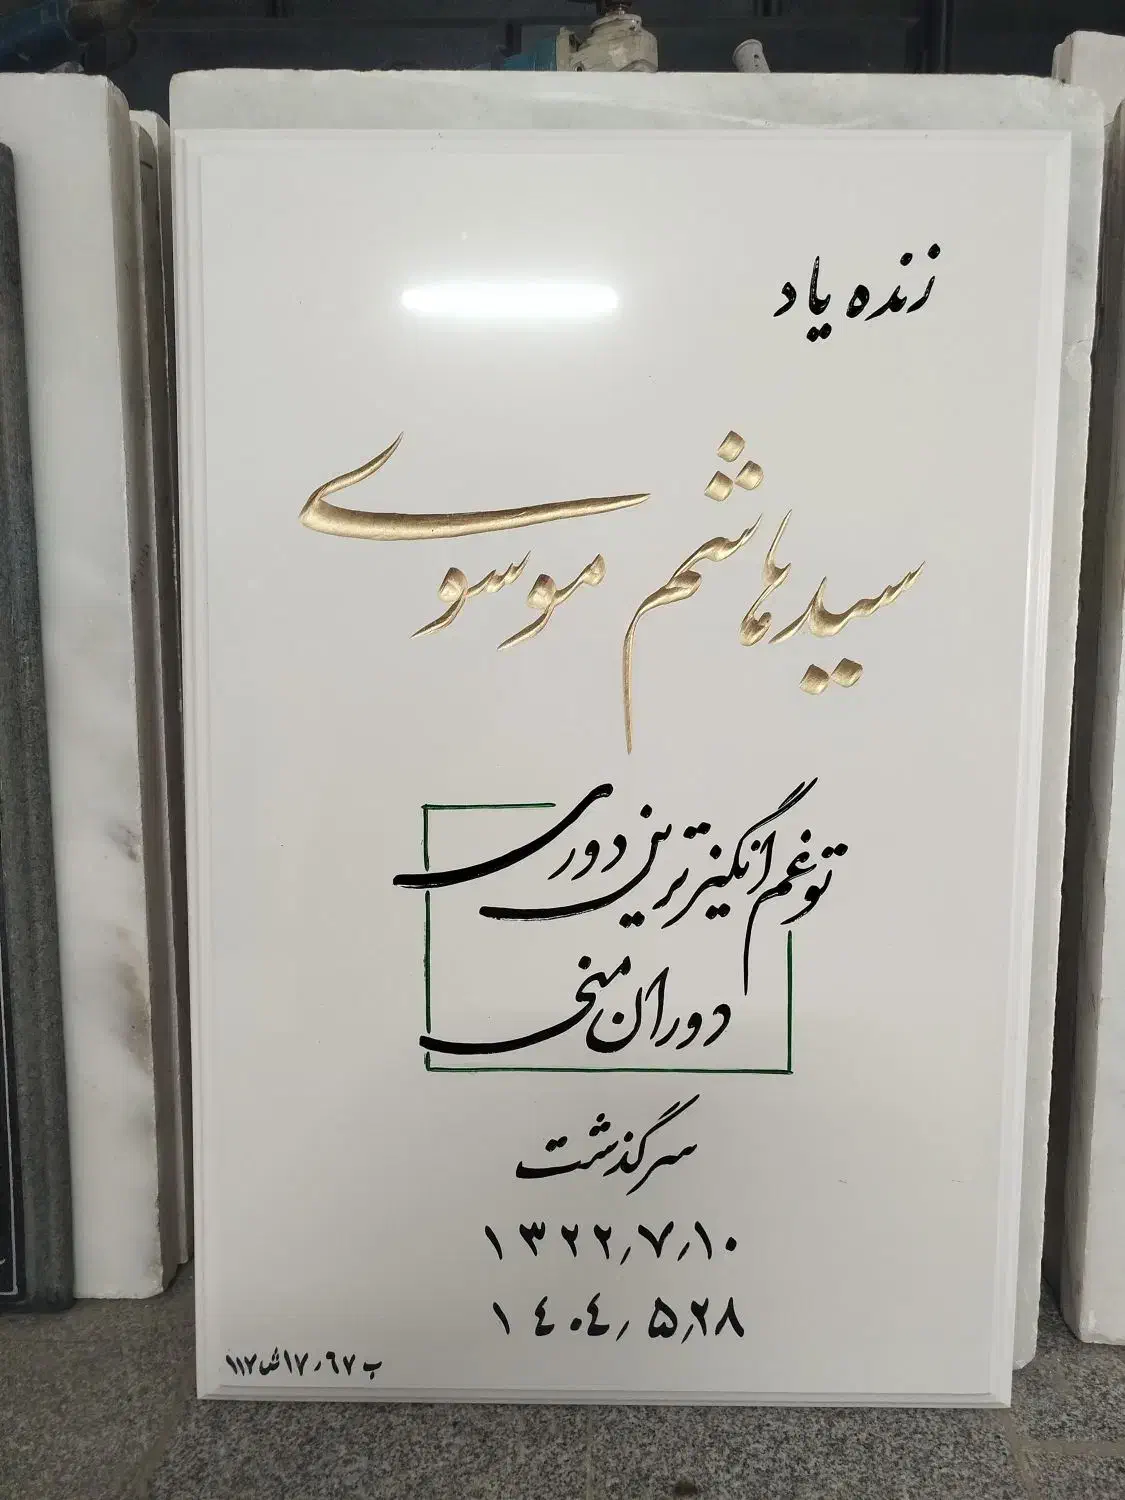 زنده یاد
سید هاشم موسوی
تو غم انگیزترین دوری
دوران منی
سرگذشت
۱۳۲۲٫۷٫۱۰
۱۴۰۴٫۵٫۲۸
ب ۶۷٫۱۷ش۱۱۲